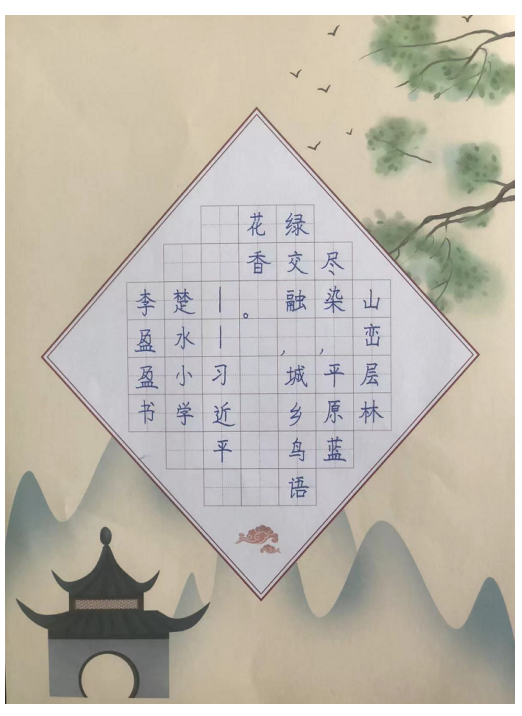 山峦层林
尽染，平原蓝
绿交融，城乡鸟语
花香。
——习近平
楚水小学
李盈盈书